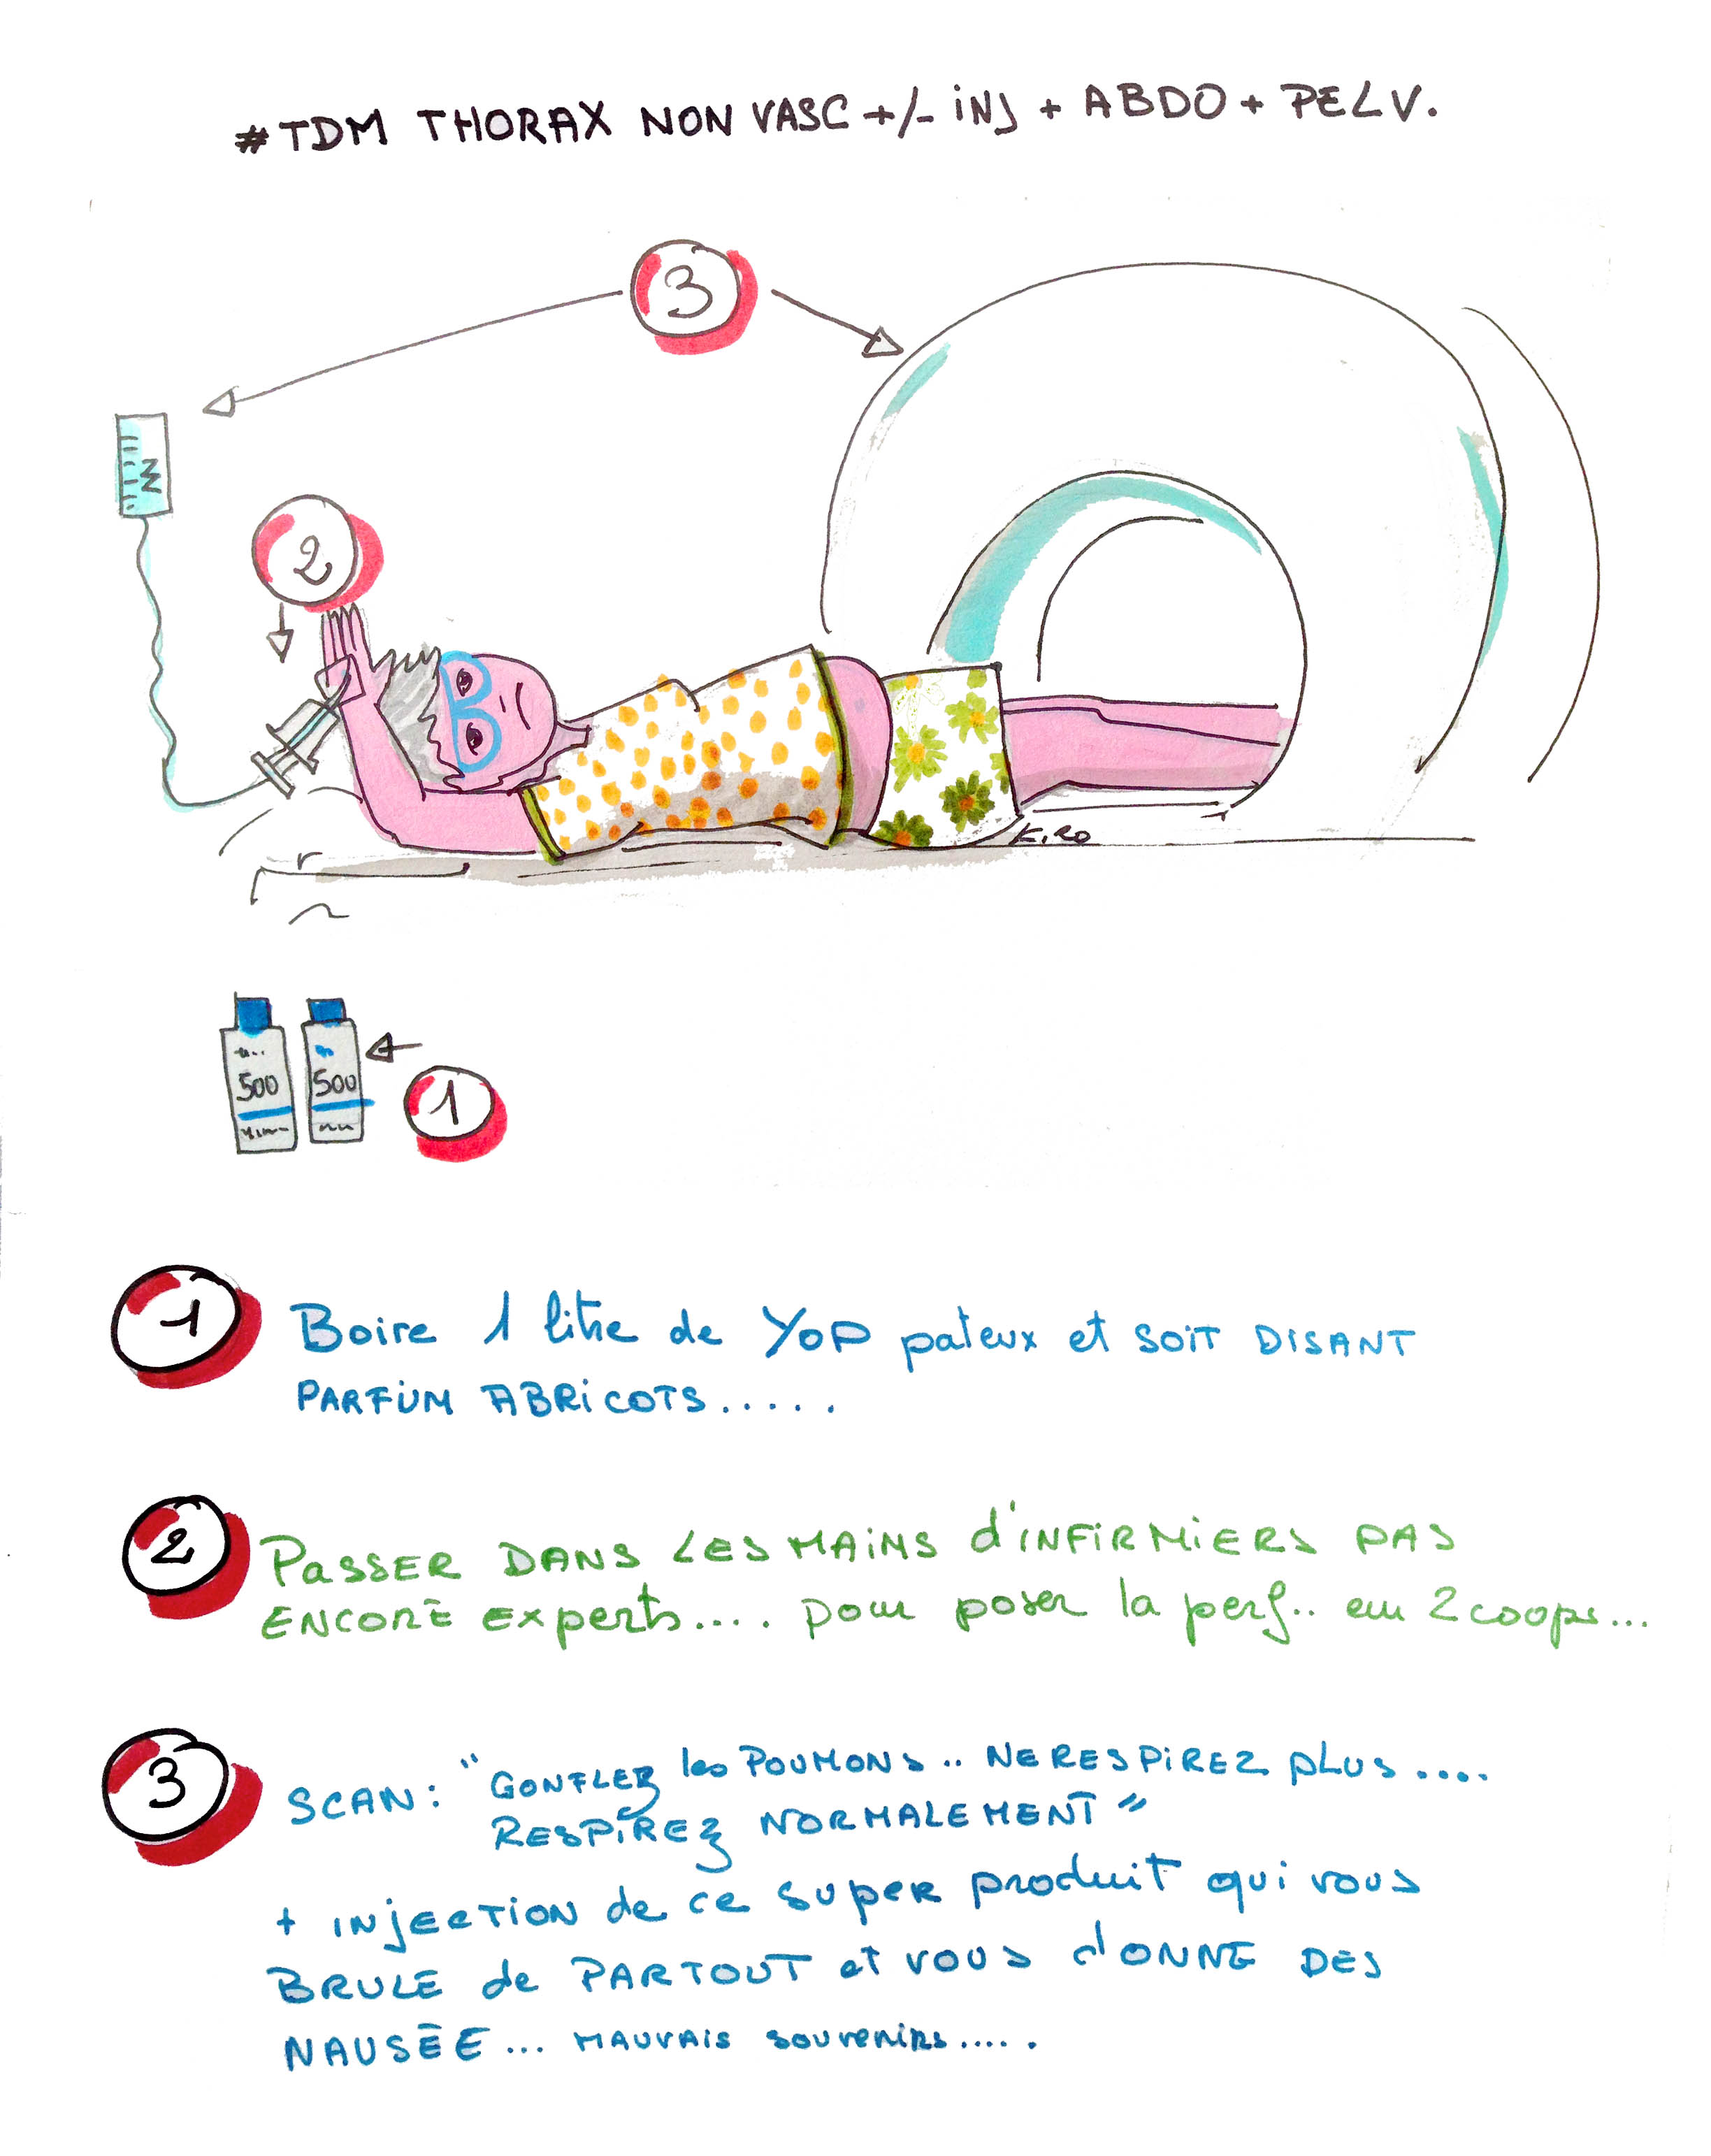 #TDM THORAX NON VASC +/- INJ + ABDO + PELV.
3
2
K.RO
500 500
1
1 Boire 1 litre de YOP pateux et SOIT DISANT
PARFUM ABRICOTS.....
2 PASSER DANS LES MAINS d'INFIRMIERS PAS
ENCORE experts.... pour poser la perf.. en 2 coops...
3 SCAN: "GONFLEZ les POUMONS.. NE RESPIREZ PLUS....
RESPIREZ NORMALEMENT"
+ INJECTION de ce super produit qui vous
BRULE de PARTOUT et vous dONNE DES
NAUSÉE... MAUVAIS souvenirs.....